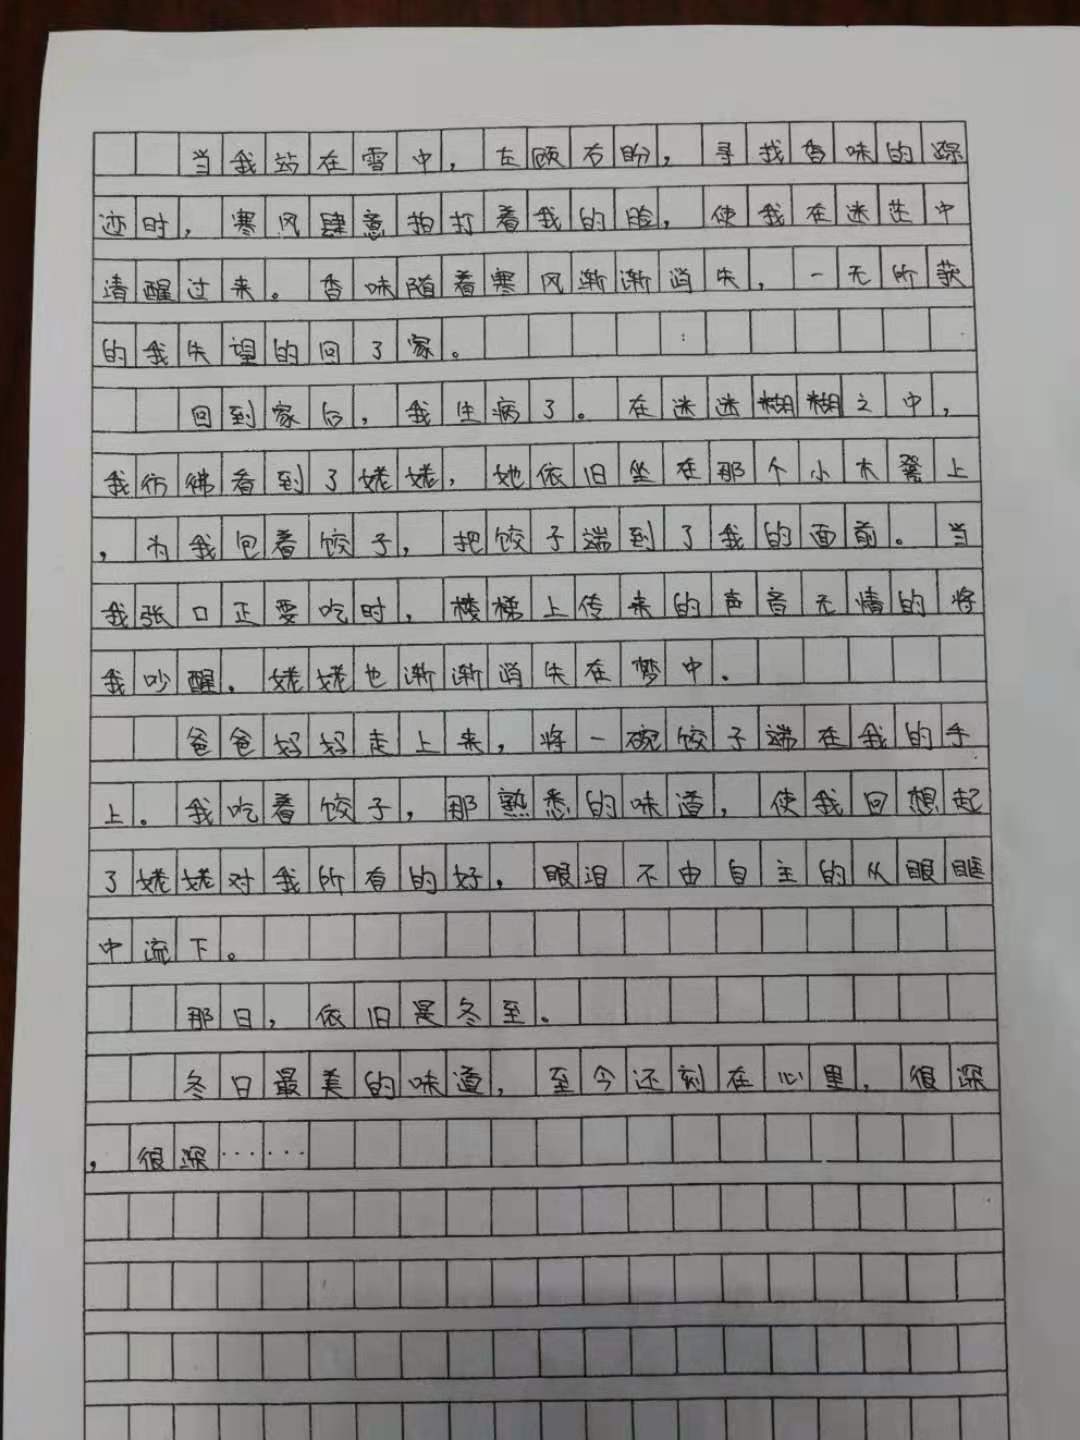 当我站在雪中，左顾右盼，寻找香味的踪
迹时，寒风肆意拍打着我的脸，使我在迷茫中
清醒过来。香味随着寒风渐渐消失，一无所获
的我失望的回了家。
回到家后，我生病了。在迷迷糊糊之中，
我彷彿看到了姥姥，她依旧坐在那个小木凳上
，为我包着饺子，把饺子端到了我的面前。当
我张口正要吃时，楼梯上传来的声音无情的将
我吵醒。姥姥也渐渐消失在梦中。
爸爸妈妈走上来，将一碗饺子端在我的手
上。我吃着饺子，那熟悉的味道，使我回想起
了姥姥对我所有的好，眼泪不由自主的从眼眶
中流下。
那日，依旧是冬至。
冬日最美的味道，至今还刻在心里，很深
，很深……